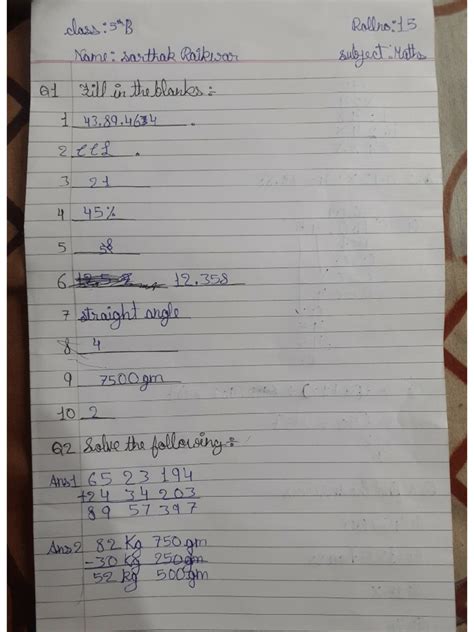 class: 5th B Rollno: 15
Name: sarthak Raikwar subject: Maths
Q1 Fill in the blanks :-
1 43,89,4634 .
2 CCL .
3 21
4 45%
5 58
6 12.358
7 straight angle
8 4
9 7500 gm
10 2
Q2 Solve the following :-
Ans1 65 23 194
+24 34 203
89 57 397
Ans2 82 Kg 750 gm
-30 Kg 250 gm
52 kg 500 gm